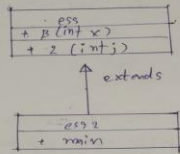 ess
+ B (int x)
+ 2 (int j)
extends
ess2
+ main